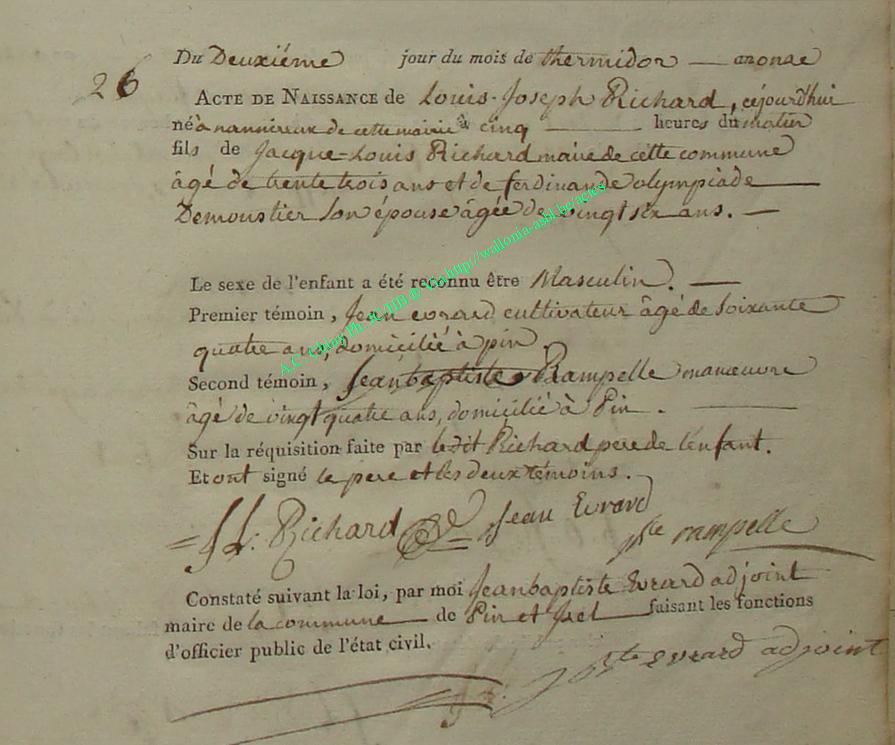 Du Deuxiéme jour du mois de thermidor — an onze
26
ACTE DE NAISSANCE de Louis-Joseph Richard, cejourd'hui
né à mairie à cinq — heures du matin
fils de Jacque-Louis Richard maire de cette commune
âgé de trente trois ans et de ferdinande olympiade
Demoustier son épouse âgée de vingt six ans. —
Le sexe de l'enfant a été reconnu être Masculin. —
Premier témoin, Jean evrard cultivateur âgé de soixante
quatre ans, domicilié à pin
Second témoin, Jeanbaptiste Rampelle manœuvre
âgé de vingt quatre ans, domicilié à Pin. —
Sur la réquisition faite par ledit Richard pere de l'enfant.
Et ont signé le pere et les deux témoins.
J L. Richard Jean Evrard
jbte rampelle
Constaté suivant la loi, par moi Jeanbaptiste Evrard adjoint
maire de la commune — de Pin et Izel — faisant les fonctions
d'officier public de l'état civil.
jbte evrard adjoint
http://wallonia-asbl.be/actes